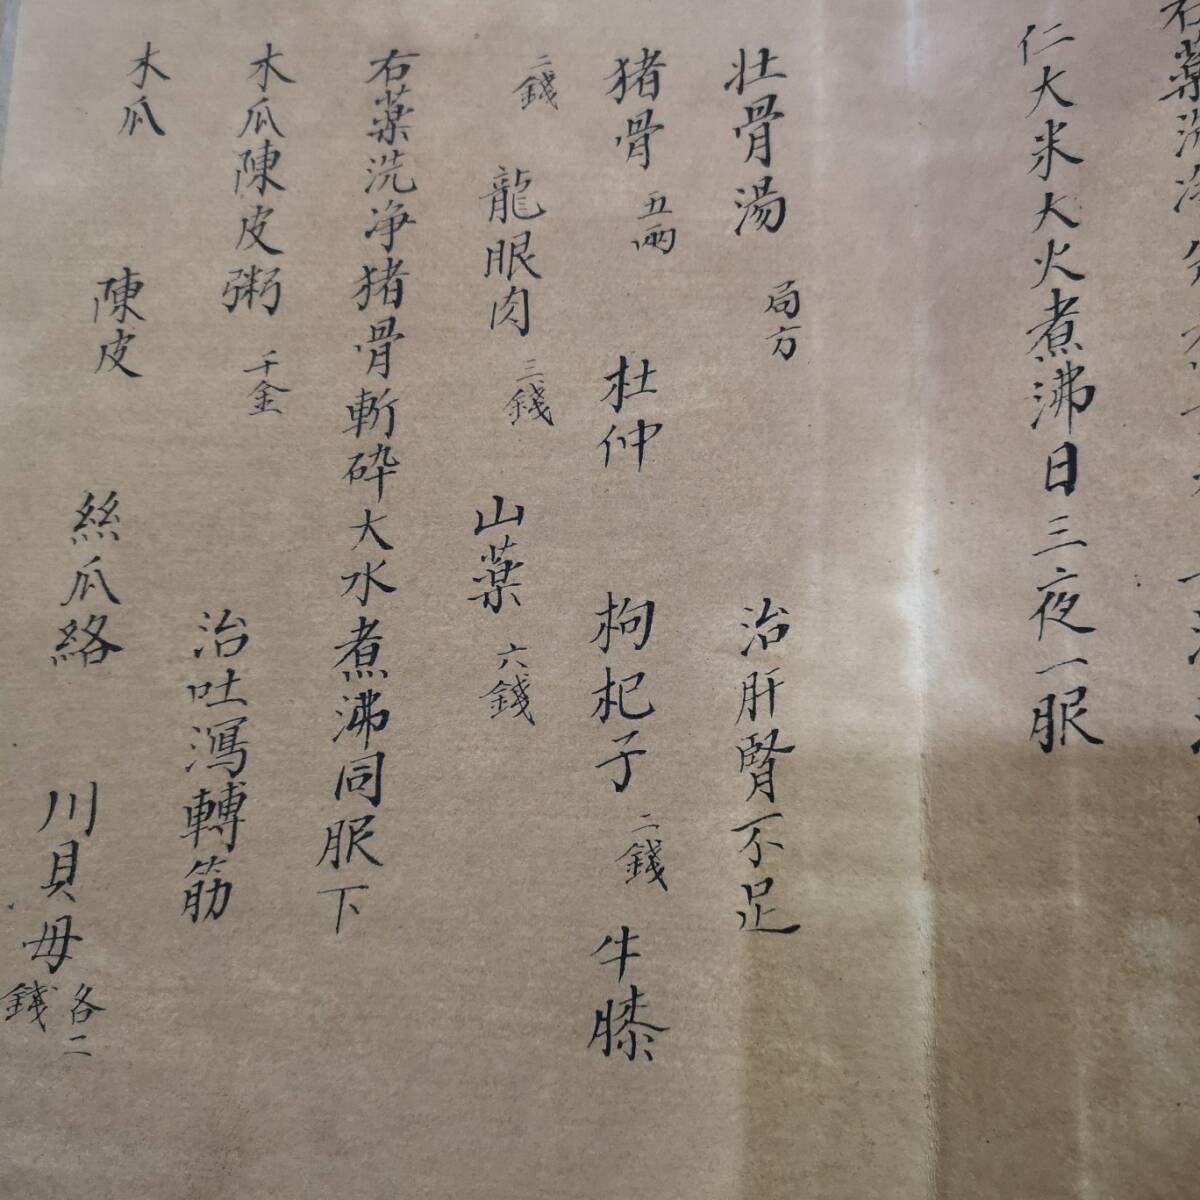 右藥
仁大米大火煮沸日三夜一服
壯骨湯 局方 治肝腎不足
猪骨 五兩 杜仲 枸杞子 二錢 牛膝
二錢 龍眼肉 三錢 山藥 六錢
右藥洗净猪骨斬碎大水煮沸同服下
木瓜陳皮粥 千金 治吐瀉轉筋
木瓜 陳皮 絲瓜絡 川貝母 各二錢